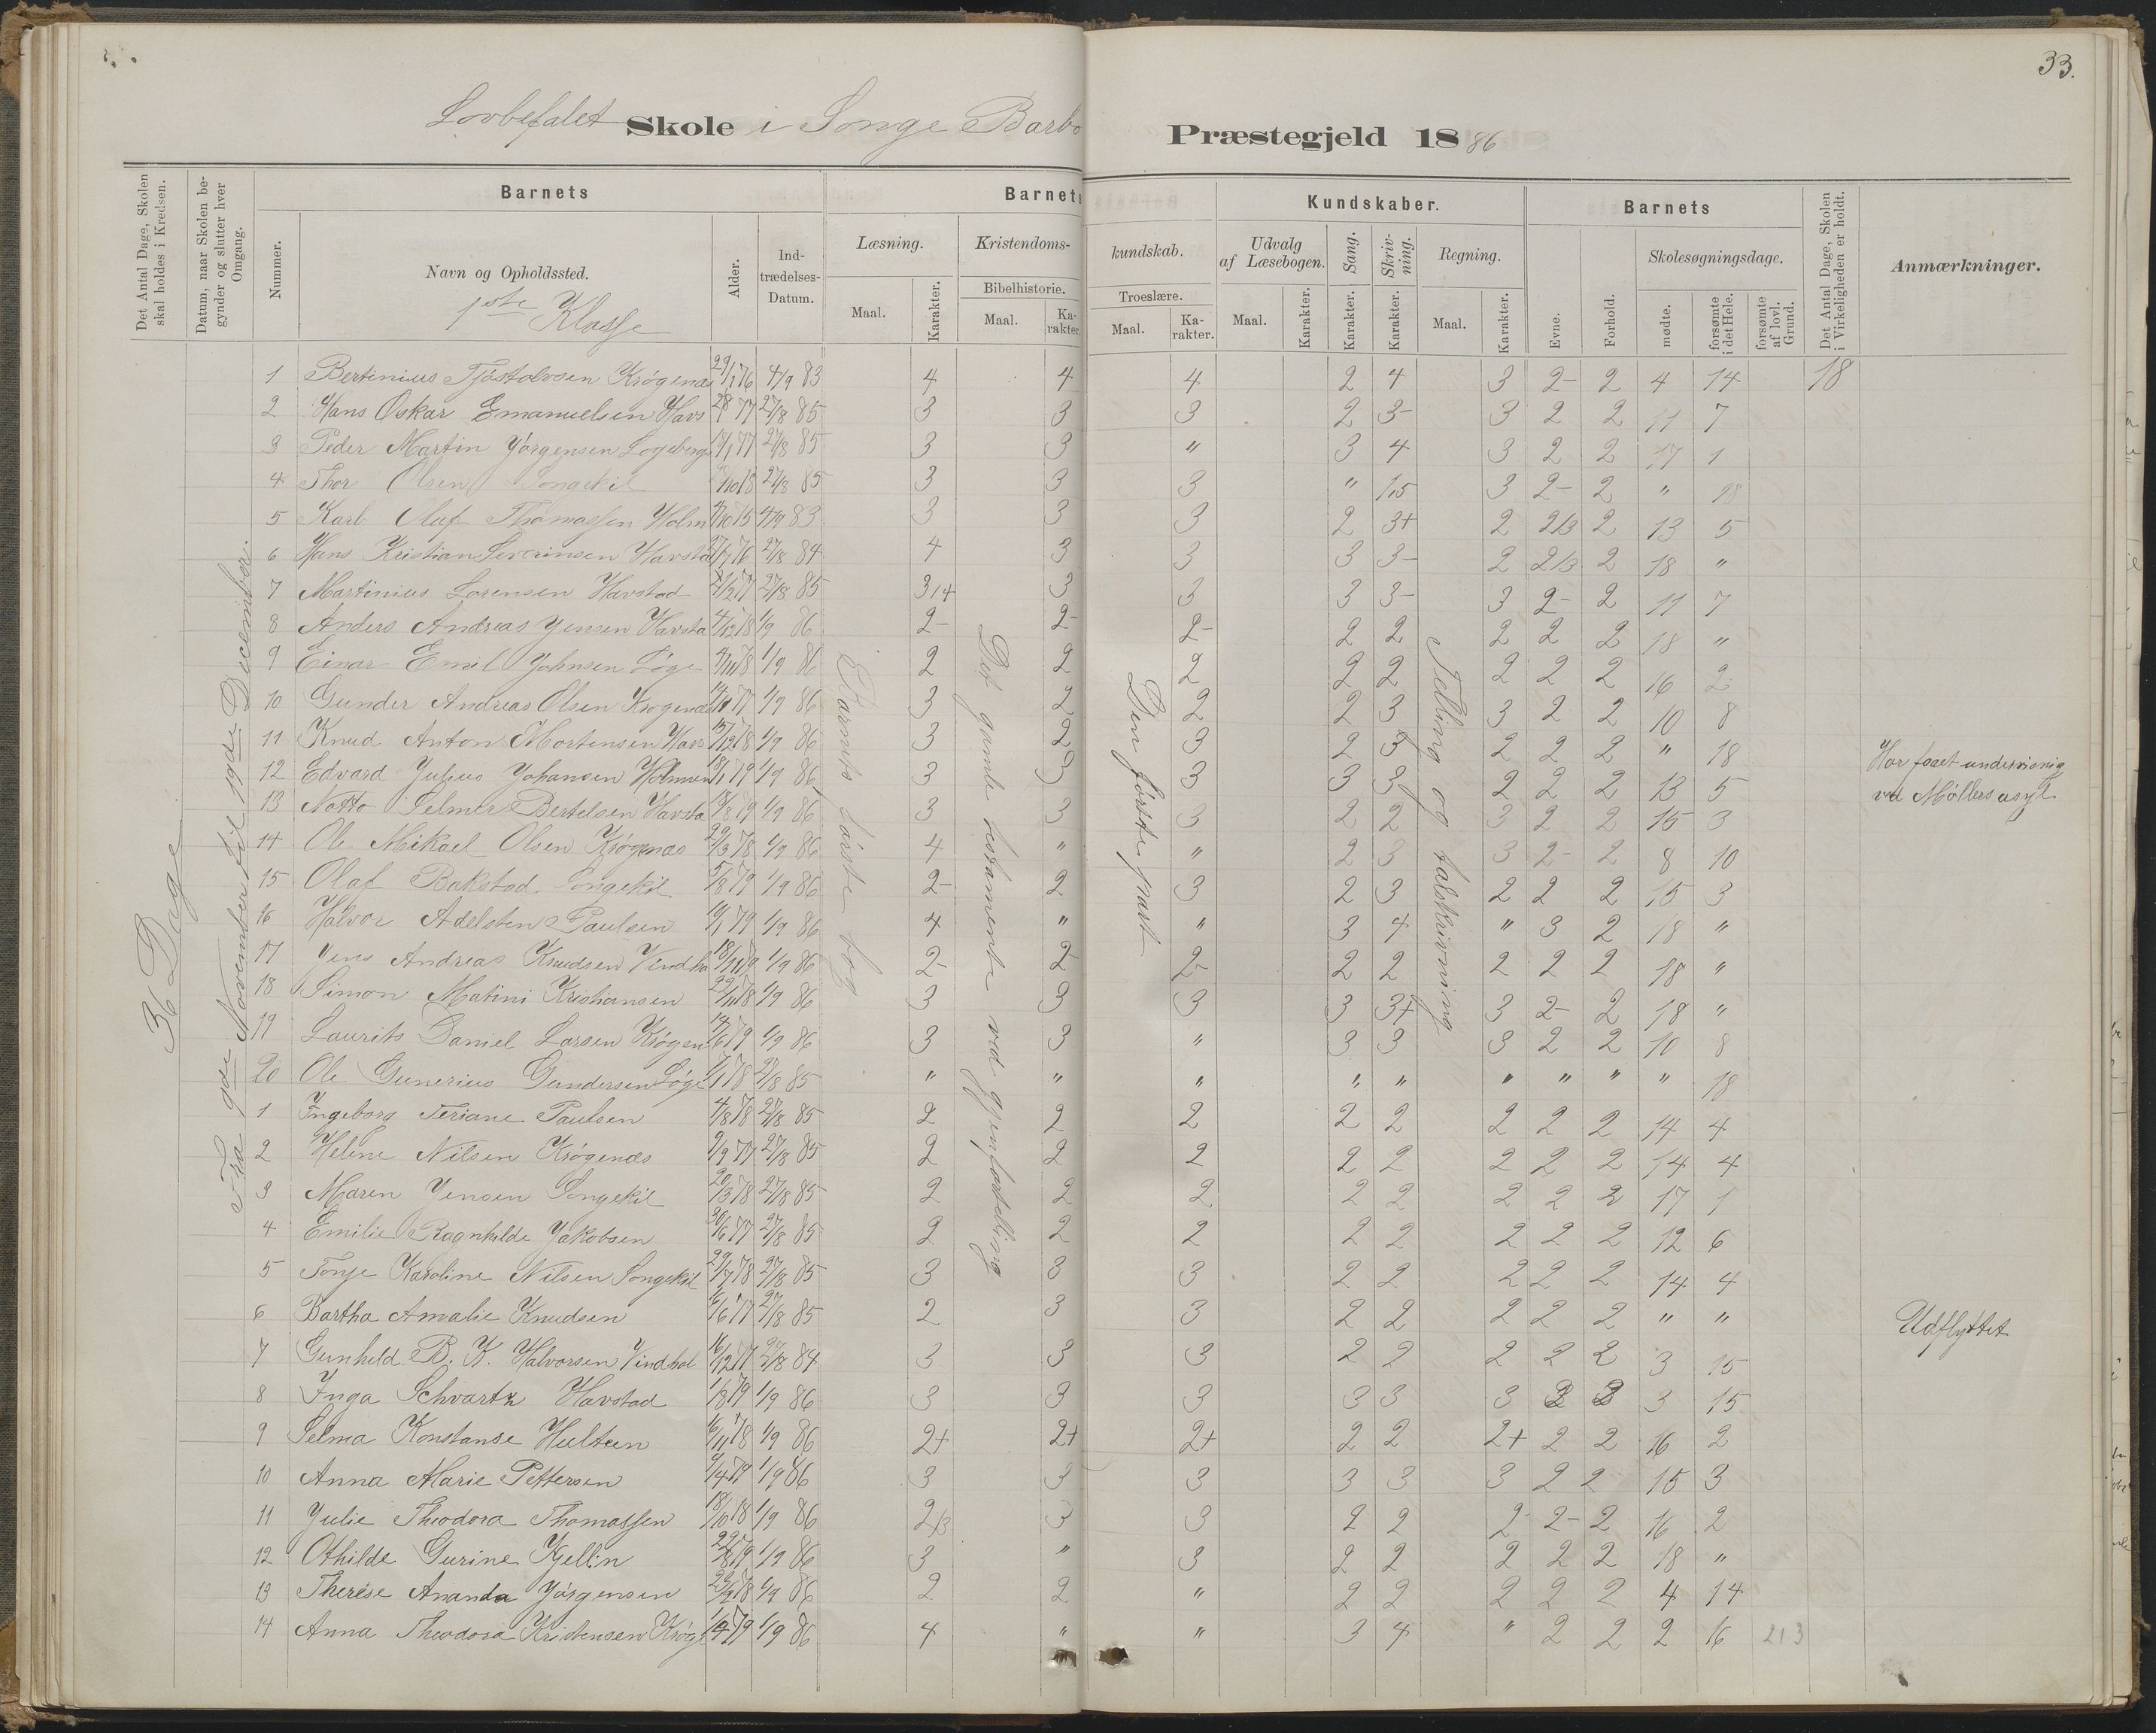 33.
Lovbefalet Skole i Songe Barbo Præstegjeld 1886
Det Antal Dage, Skolen skal holdes i Kredsen.
Datum, naar Skolen begynder og slutter hver Omgang.
Barnets
Nummer.
Navn og Opholdssted.
1ste Klasse
Alder.
Indtrædelses-Datum.
Barnets Kundskaber.
Læsning.
Maal.
Karakter.
Kristendoms-kundskab.
Bibelhistorie.
Maal.
Karakter.
Troeslære.
Maal.
Karakter.
Udvalg af Læsebogen.
Maal.
Karakter.
Sang.
Karakter.
Skrivning.
Karakter.
Regning.
Maal.
Karakter.
Barnets
Evne.
Forhold.
Skolesøgningsdage.
mødte.
forsømte i det Hele.
forsømte af lovl. Grund.
Det Antal Dage, Skolen i Virkeligheden er holdt.
Anmærkninger.
36 Dage
Fra 9de November til 19de December.
Barnets første bog
Det gamle testamente ved gjenfortelling
Den første part
Telling og talskrivning
1 Bertinius Tjøstolvsen Krøgenæs 29/1 76 4/9 83 4 4 4 2 4 3 2- 2 4 14 18
2 Hans Oskar Emanuelsen Havs 77 27/8 85 3 3 3 2 3- 3 2 2 11 7
3 Peder Martin Jørgensen Logeberg 77 27/8 85 3 3 " 3 4 3 2 2 17 1
4 Thor Olsen Songekil 27/8 85 3 3 3 " 1,5 3 2- 2 "
5 Karl Oluf Thomassen Holm 75 4/9 83 3 3 3 2 3+ 2 2/3 2 13 5
6 Hans Kristian Severinsen Havstad 76 27/8 84 4 3 3 3 3- 2 2/3 2 18 "
7 Martinius Lorensen Havstad 77 27/8 85 3/4 3 3 3 3- 3 2- 2 11 7
8 Anders Andreas Jensen Havsta 4/12 78 1/9 86 2- 2- 2- 2 2 2 2 2 18 "
9 Einar Emil Johnsen Løge 78 1/9 86 2 2 2 2 2 2 2 2 16 2
10 Gunder Andreas Olsen Krogenæs 77 1/9 86 3 2 2 2 3 3 2 2 10 8
11 Knud Anton Mortensen Havs 15/12 78 1/9 86 3 2 3 2 3 2 2 2 " 18 Har faaet undervisnig
12 Edvard Julius Johansen Holmen 79 1/9 86 3 3 3 3 3- 2 2 2 13 5 ved Møllers asyl
13 Notto Selmer Bertelsen Havsta 79 1/9 86 3 3 3 2 2 3 2 2 15 3
14 Ole Mikael Olsen Krøgenæs 29/3 78 1/9 86 4 " " 2 3 3 2- 2 8 10
15 Olaf Bakstad Songekil 5/8 79 1/9 86 2- 2 3 2 3 2 2 2 15 3
16 Halvor Adelsten Paulsen 79 1/9 86 4 " " 3 4 " 3 2 18 "
17 Jens Andreas Knudsen Vindho 1/9 86 2- 2- 2- 2 2 2 2 2 18 "
18 Simon Matini Kristiansen 22/11 78 1/9 86 3 3 3 3 3+ 3 2- 2 18 "
19 Laurits Daniel Larsen Krøgen 14/6 79 1/9 86 3 3 " 3 3 3 2 2 10 8
20 Ole Gunerius Gundersen Løge 78 27/8 85 " " " " " " " " " 18
1 Ingeborg Teriane Paulsen 4/8 78 27/8 85 2 2 2 2 2 2 2 2 14 4
2 Helene Nilsen Krøgenæs 9/9 77 27/8 85 2 2 2 2 2 2 2 2 14 4
3 Maren Jensen Songekil 20/3 78 27/8 85 2 2 2 2 2 2 2 2 17 1
4 Emilie Ragnhilde Jakobsen 30/6 77 27/8 85 2 2 2 2 2 2 2 2 12 6
5 Tonje Karoline Nilsen Songekil 29/7 78 27/8 85 3 3 3 2 2 2 2 2 14 4
6 Bartha Amalie Knudsen 16/6 77 27/8 85 2 3 3 2 2 2 2 2 " " Udflyttet
7 Gunhild B. K. Halvorsen Vindhol 16/12 77 27/8 84 3 3 3 2 2 2 2 2 3 15
8 Inga Schvartz Havstad 1/8 79 1/9 86 3 3 3 3 3 3 2 3 15
9 Selma Konstanse Hulteen 16/11 78 1/9 86 2+ 2+ 2+ 2 2 2+ 2 2 16 2
10 Anna Marie Pettersen 9/4 79 1/9 86 3 3 3 3 3 3 2 2 15 3
11 Julie Theodora Thomassen 18/10 78 1/9 86 2/3 3 3 2 2 2- 2- 2 16 2
12 Othilde Gurine Kjellin 22/8 79 1/9 86 3 " 3 2 2 2 2 2 18 "
13 Therése Ananda Jørgensen 78 1/9 86 2 2 " 2 2 2 2 2 4 14
14 Anna Theodora Kristensen Krøg 79 1/9 86 4 " " 3 4 " 2 2 2 16 213